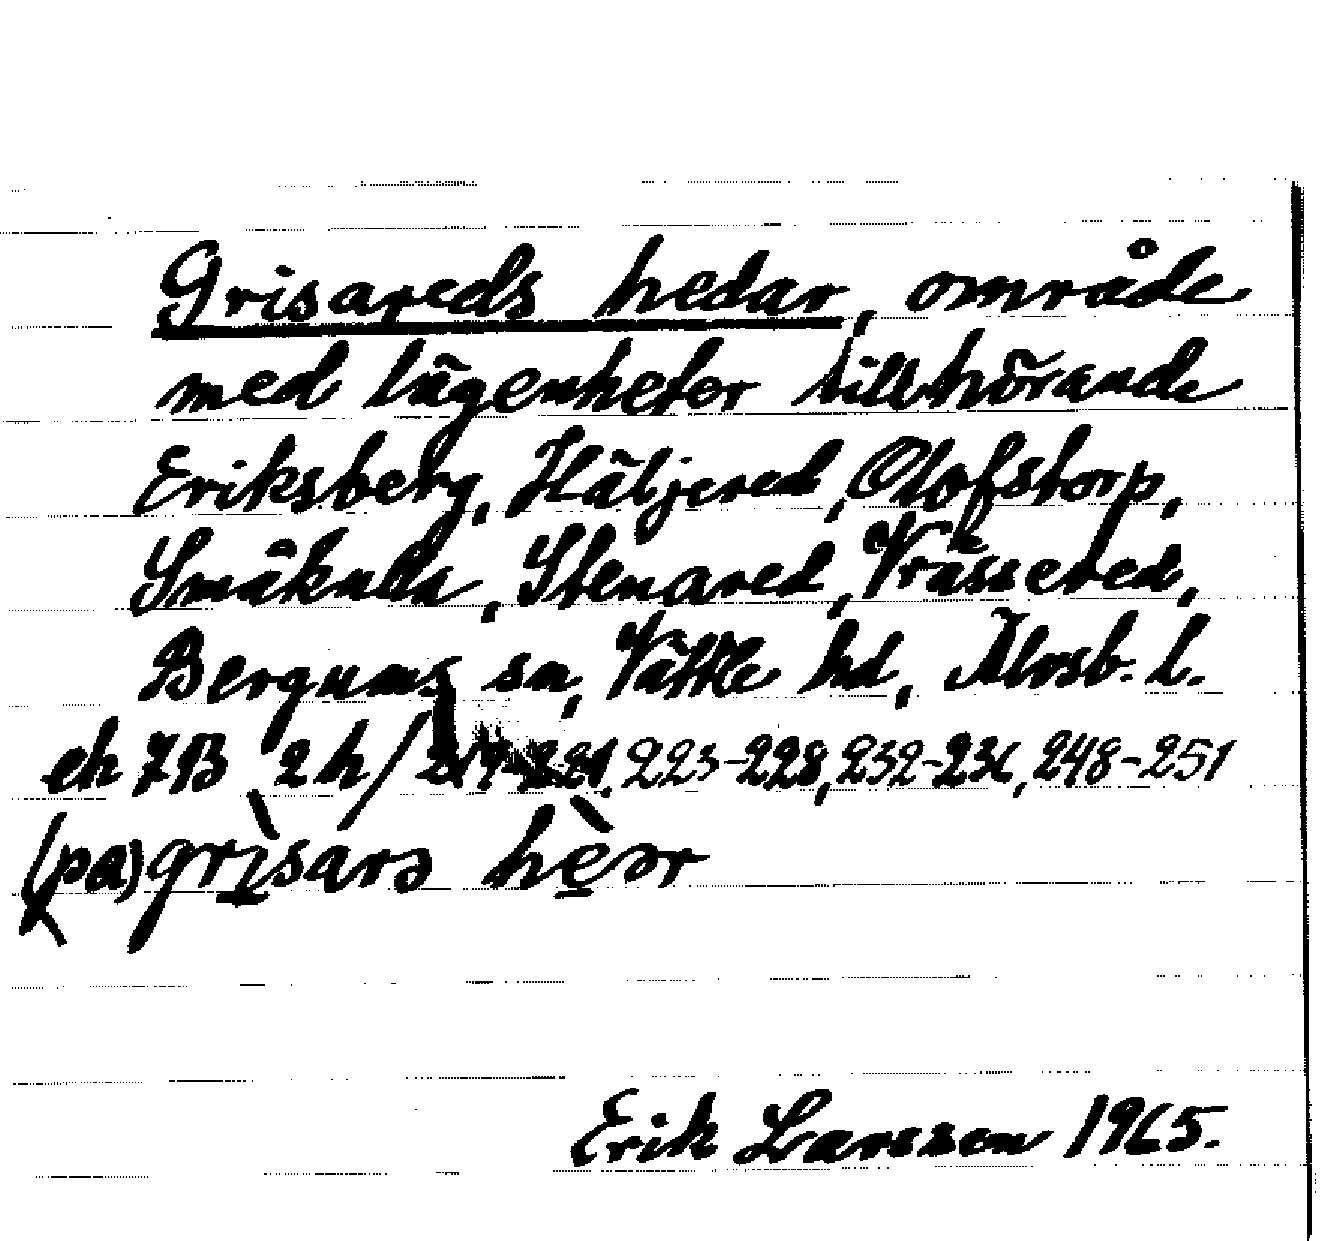 Grisareds hedar, område
med lägenheter tillhörande
Eriksberg, Häljered, Olofstorp,
Småkulla, Stenared, Vrässered,
Bergums sn, Vättle hd, Älvsb. l.
ek 7B 2h/ 223-228, 232-236, 248-251
(pa) grìsarə hèər
Erik Larsson 1965.